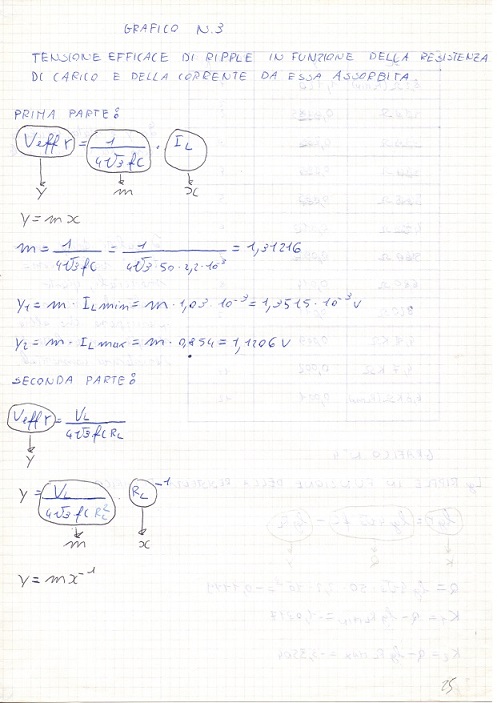 GRAFICO N.3
TENSIONE EFFICACE DI RIPPLE IN FUNZIONE DELLA RESISTENZA
DI CARICO E DELLA CORRENTE DA ESSA ASSORBITA
PRIMA PARTE:
Veff r = 1/(4√3 fC) · IL
Y m x
Y = m x
m = 1/(4√3 fC) = 1/(4√3 · 50 · 2,2 · 10³) = 1,31216
Y1 = m · IL min = m · 1,03 · 10⁻³ = 1,3515 · 10⁻³ V
Y2 = m · IL max = m · 0,854 = 1,1206 V
SECONDA PARTE:
Veff r = VL/(4√3 fC RL)
Y
Y = VL/(4√3 fC RL²) · RL⁻¹
m x
Y = m x⁻¹
25